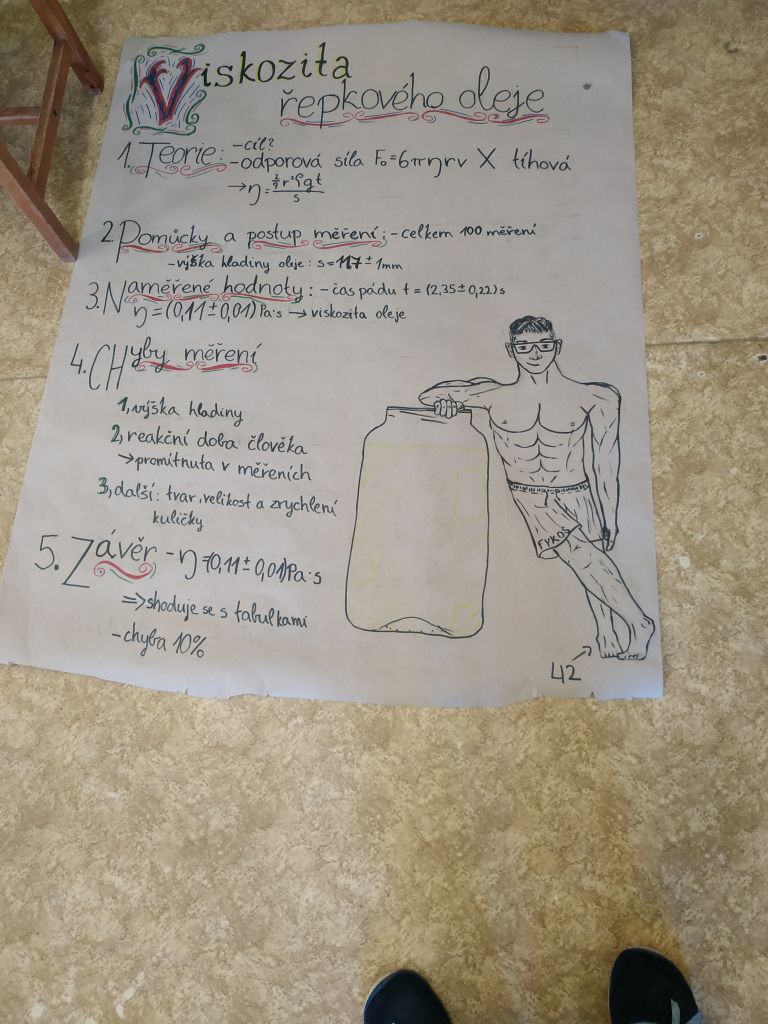 Viskozita
řepkového oleje
1. Teorie: -cíl?
-odporová síla Fo=6πηrv X tíhová
→η = 2/9 r²ρgt / s
2. Pomůcky a postup měření: -celkem 100 měření
-výška hladiny oleje: s = 117 ± 1mm
3. Naměřené hodnoty: -čas pádu t = (2,35 ± 0,22) s
η = (0,11 ± 0,01) Pa·s → viskozita oleje
4. CHyby měření
1, výška hladiny
2, reakční doba člověka
→promítnuta v měřeních
3, další: tvar, velikost a zrychlení
kuličky
5. Závěr - η = (0,11 ± 0,01) Pa·s
⇒ shoduje se s tabulkami
-chyba 10%
FYKOS
42